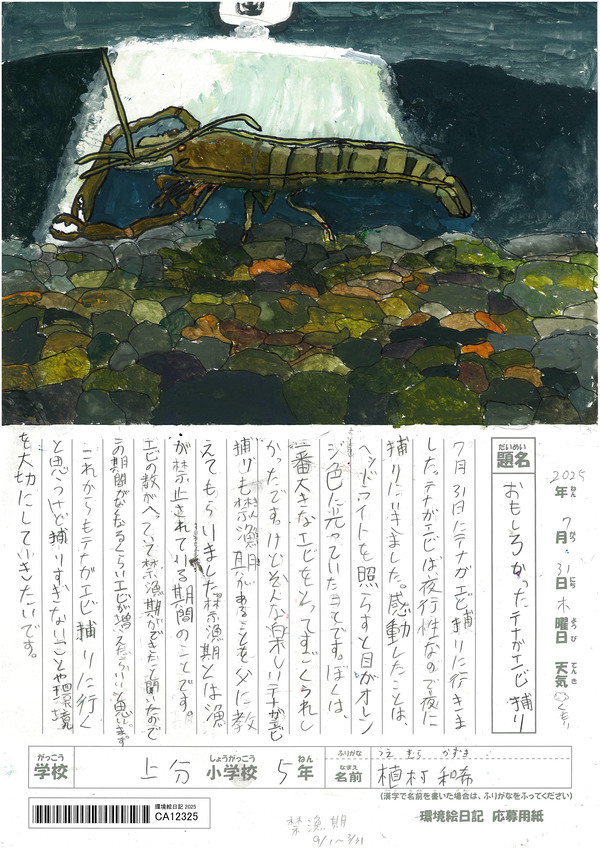 2025年 7月31日 木曜日 天気 くもり
ねん がつ にち ようび てんき
だいめい
題名
おもしろかったテナガエビ捕り
7月31日にテナガエビ捕りに行きま
した。テナガエビは夜行性なので夜に
捕りにいきました。感動したことは、
ヘッドライトを照らすと目がオレン
ジ色に光っていた事です。ぼくは、
一番大きなエビをとってすごくうれし
かったです。けどそんな楽しいテナガエビ
捕りも禁漁期があることを父に教
えてもらいました。禁漁期とは漁
が禁止されている期間のことです。
エビの数がへっていて禁漁期ができたと聞いたので
この期間がなくなるくらいエビが増えたらいいと思います
これからもテナガエビ捕りに行く
と思うけど捕りすぎないことや環境
を大切にしていきたいです。
がっこう
学校
上分
しょうがっこう
小学校
5
ねん
年
ふりがな
うえ むら かずき
なまえ
名前
植村 和希
(漢字で名前を書いた場合は、ふりがなをふってください)
環境絵日記 2025
CA12325
環境絵日記 応募用紙
禁漁期
9/1〜3/31